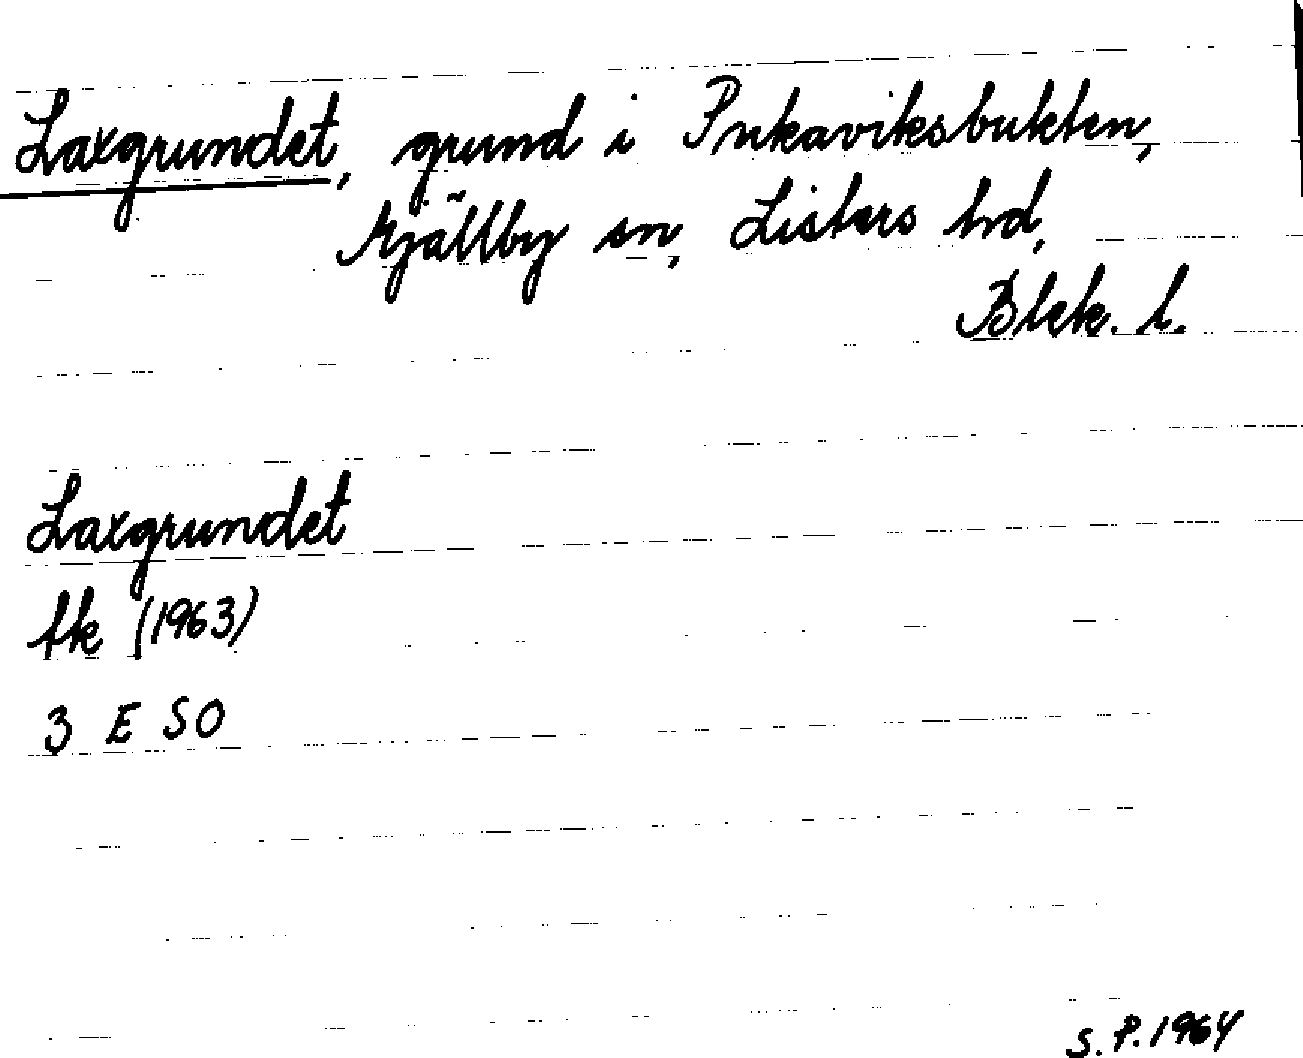 Laxgrundet, grund i Pukaviksbukten,
Mjällby sn, Listers hd,
Blek. l.
Laxgrundet
fk (1963)
3 E SO
S. P. 1964